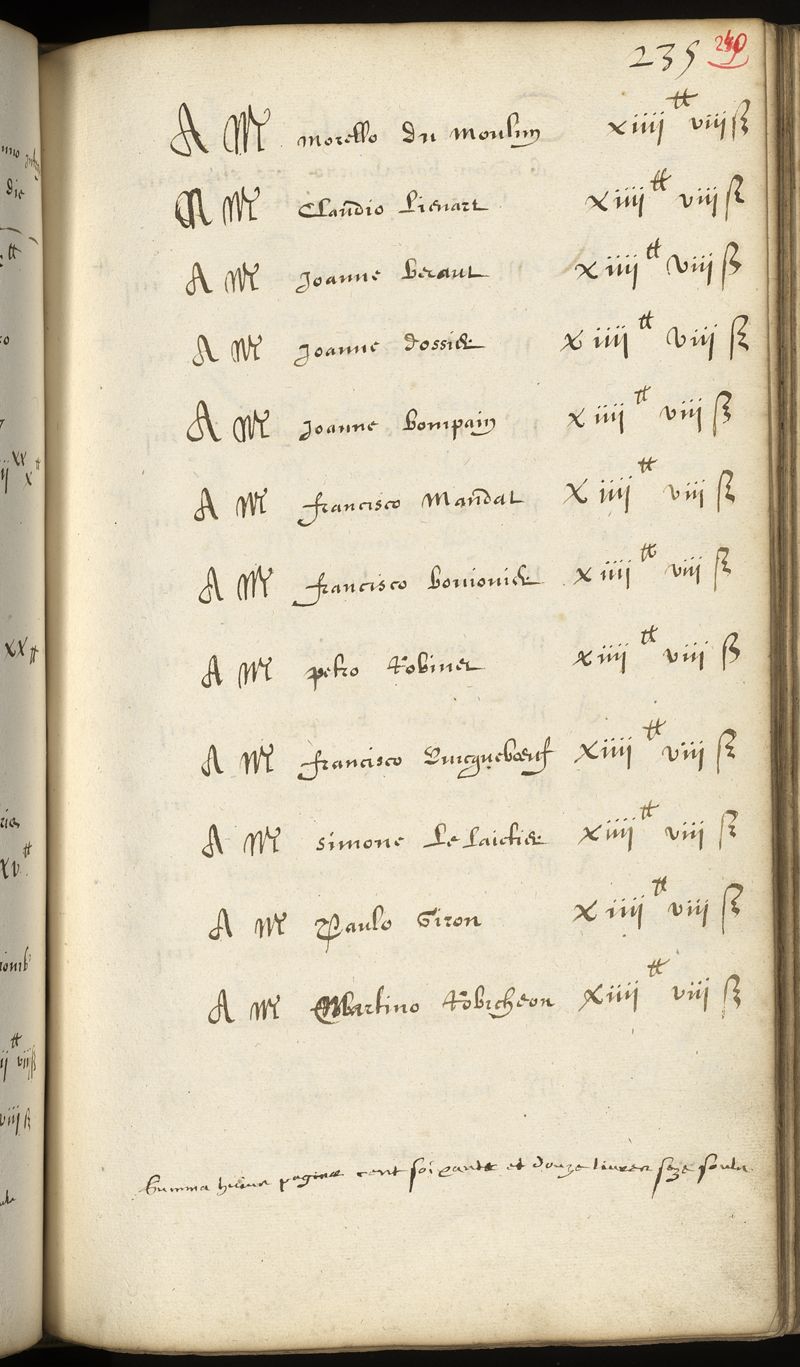 235 240
A Mʳ morello du moulin xiiii ₶ viii ß
A Mʳ Claudio Lienart xiiii ₶ viii ß
A Mʳ Joanne beraut xiiii ₶ viii ß
A Mʳ Joanne dossier xiiii ₶ viii ß
A Mʳ Joanne bompain xiiii ₶ viii ß
A Mʳ francisco Mandat xiiii ₶ viii ß
A Mʳ francisco bouionier xiiii ₶ viii ß
A Mʳ petro Robinet xiiii ₶ viii ß
A Mʳ francisco Quicquebœuf xiiii ₶ viii ß
A Mʳ simone Le Laictier xiiii ₶ viii ß
A Mʳ Paulo Giron xiiii ₶ viii ß
A Mʳ Martino Robicheon xiiii ₶ viii ß
Summa huius paginæ cent soixante et douze livres seze soulz